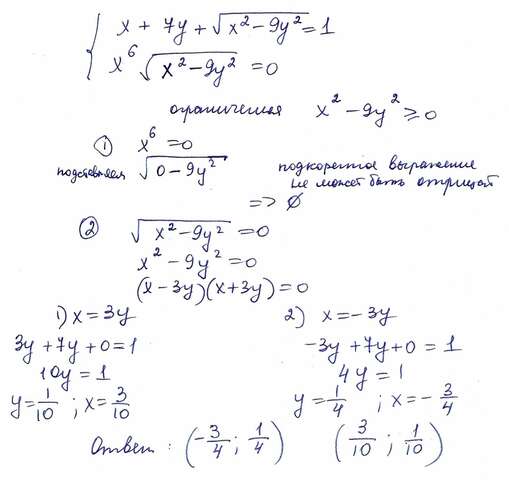 x + 7y + √(x² − 9y²) = 1
x⁶ √(x² − 9y²) = 0
ограничения x² − 9y² ≥ 0
① x⁶ = 0
подставляем √(0 − 9y²) подкоренное выражение
не может быть отрицат
=> ∅
② √(x² − 9y²) = 0
x² − 9y² = 0
(x − 3y)(x + 3y) = 0
1) x = 3y 2) x = −3y
3y + 7y + 0 = 1 −3y + 7y + 0 = 1
10y = 1 4y = 1
y = 1/10 ; x = 3/10 y = 1/4 ; x = −3/4
Ответ : (−3/4 ; 1/4) (3/10 ; 1/10)